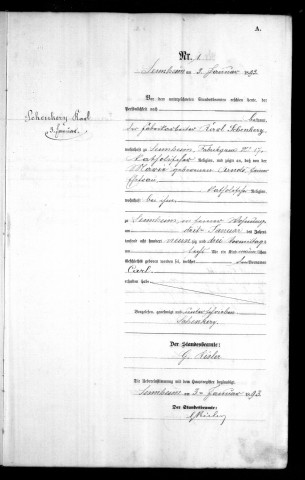 A.
Nr. 1
Sennheim am 3. Januar 1893.
Schenkery Karl
3. Januar.
Vor dem unterzeichneten Standesbeamten erschien heute, der
Persönlichkeit nach
kannt,
der Fabrikarbeiter Karl Schenkery
wohnhaft zu Sennheim, Fabrikgasse
katholischer Religion, und zeigte an, daß von der
Maria geborenen
Ehefrau
katholischer Religion,
wohnhaft bei ihm
zu Sennheim in seiner Wohnung
am Januar des Jahres
tausend acht hundert neunzig drei Vormittags
um Uhr ein Kind männlichen
Geschlechts geboren worden sei, welches Vornamen
Carl
erhalten habe.
Vorgelesen, genehmigt und unterschrieben
Schenkery
Der Standesbeamte:
G. Risler
Die Uebereinstimmung mit dem Hauptregister beglaubigt
Sennheim am 3. Januar 1893.
Der Standesbeamte:
G Risler